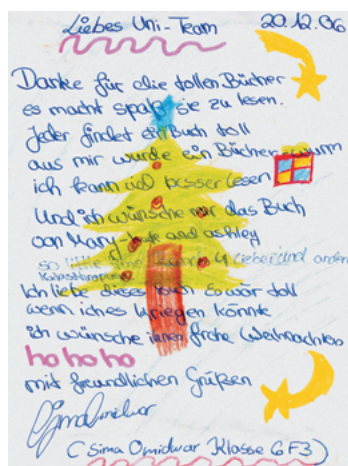 Liebes Uni-Team 20.12.06
Danke für die tollen Bücher
es macht spaß sie zu lesen.
Jeder findet ein Buch toll
aus mir wurde ein Bücherwurm
ich kann viel besser lesen
Und ich wünsche mir das Buch
von Mary-Kate and ashley
so little time Liebe und andere
Katastrophen
Ich liebe dieses Buch Es wär toll
wenn ich es kriegen könnte
ich wünsche ihnen frohe Weihnachten
hohoho
mit freundlichen Grüßen
(Sima Omidwar Klasse 6F3)